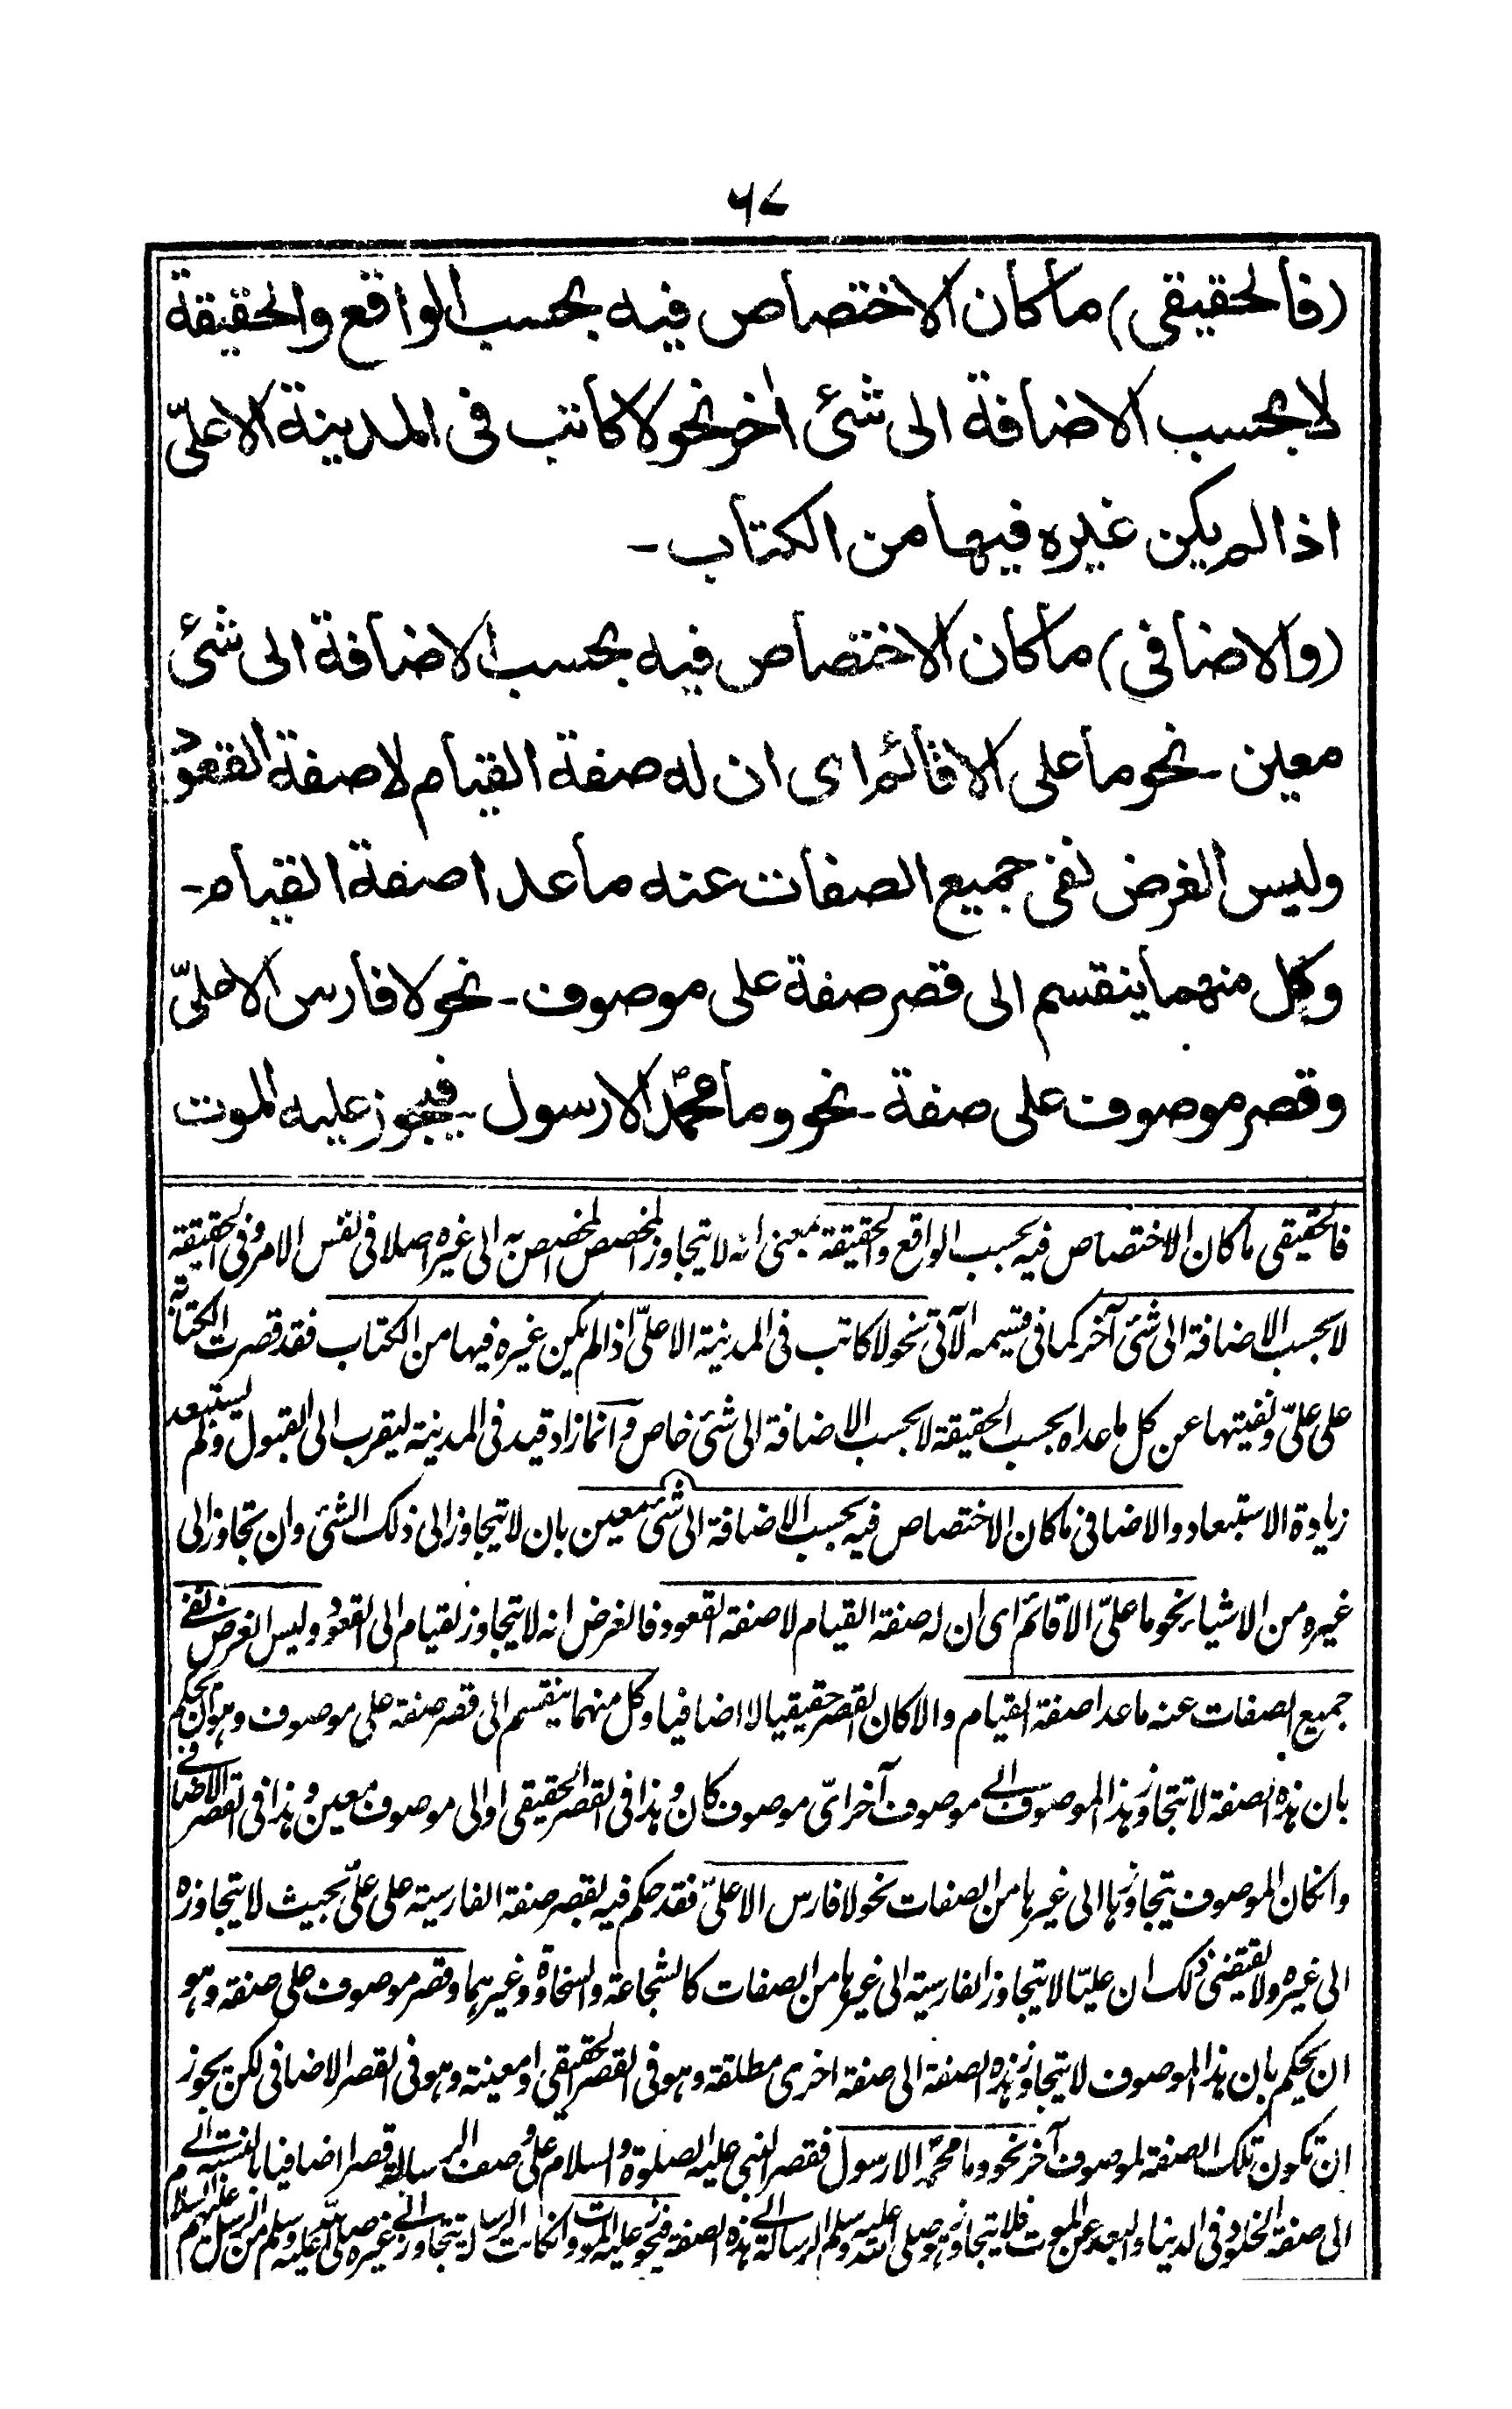 ۶۷
(فالحقيقى) ما كان الاختصاص فيه بحسب الواقع والحقيقة
لا بحسب الاضافة الى شئ اخر نحو لا كاتب فى المدينة الا علىّ
اذا لم يكن غيره فيها من الكتاب -
(والاضافى) ما كان الاختصاص فيه بحسب الاضافة الى شئ
معين - نحو ما على الا قائم اى ان له صفة القيام لا صفة القعود
وليس الغرض نفى جميع الصفات عنه ما عدا صفة القيام -
وكل منهما ينقسم الى قصر صفة على موصوف - نحو لا فارس الا علىّ
وقصر موصوف على صفة - نحو وما محمدؐ الا رسول - فيجوز عليه الموت
فالحقيقى ما كان الاختصاص فيه بحسب الواقع والحقيقة بمعنى انه لا يتجاوز المخصص المخصص به الى غيره اصلا فى نفس الامر وفى الحقيقة
لا بحسب الاضافة الى شئ آخر كما فى قسيمه الآتى نحو لا كاتب فى المدينة الا علىّ اذا لم يكن غيره فيها من الكتاب فقد قصرت الكتابة
على علىّ ونفيتها عن كل ما عداه بحسب الحقيقة لا بحسب الاضافة الى شئ خاص وانما زاد قيد فى المدينة ليقرب الى القبول ولم يستبعد
زيادة الاستبعاد والاضافى ما كان الاختصاص فيه بحسب الاضافة الى شئ معين بان لا يتجاوز الى ذلك الشئ وان تجاوز الى
غيره من الاشياء نحو ما علىّ الا قائم اى ان له صفة القيام لا صفة القعود فالغرض انه لا يتجاوز القيام الى القعود وليس الغرض نفى
جميع الصفات عنه ما عدا صفة القيام والا كان القصر حقيقيا لا اضافيا وكل منهما ينقسم الى قصر صفة على موصوف وهو ان يحكم
بان هذه الصفة لا تتجاوز هذا الموصوف الى موصوف آخر اىّ موصوف كان وهذا فى القصر الحقيقى او الى موصوف معين وهذا فى القصر الاضافى
وان كان الموصوف يتجاوزها الى غيرها من الصفات نحو لا فارس الا علىّ فقد حكم فيه بقصر صفة الفارسية على علىّ بحيث لا يتجاوزه
الى غيره ولا يقتضى ذلك ان عليّا لا يتجاوز الفارسية الى غيرها من الصفات كالشجاعة والسخاوة وغيرهما وقصر موصوف على صفة وهو
ان يحكم بان هذا الموصوف لا يتجاوز هذه الصفة الى صفة اخرى مطلقة وهو فى القصر الحقيقى او معينة وهو فى القصر الاضافى لكن يجوز
ان تكون تلك الصفة لموصوف آخر نحو وما محمدؐ الا رسول فقصر النبى عليه الصلوة والسلام على وصف الرسالة قصرا اضافيا بالنسبة الى
الى صفة الخلود فى الدنيا والبعد عن الموت فلا يتجاوز هو صلى الله عليه وسلم الرسالة الى هذه الصفة فيجوز عليه الموت وان كانت الرسالة تتجاوز الى غيره صلى الله عليه وسلم من الرسل عليهم السلام